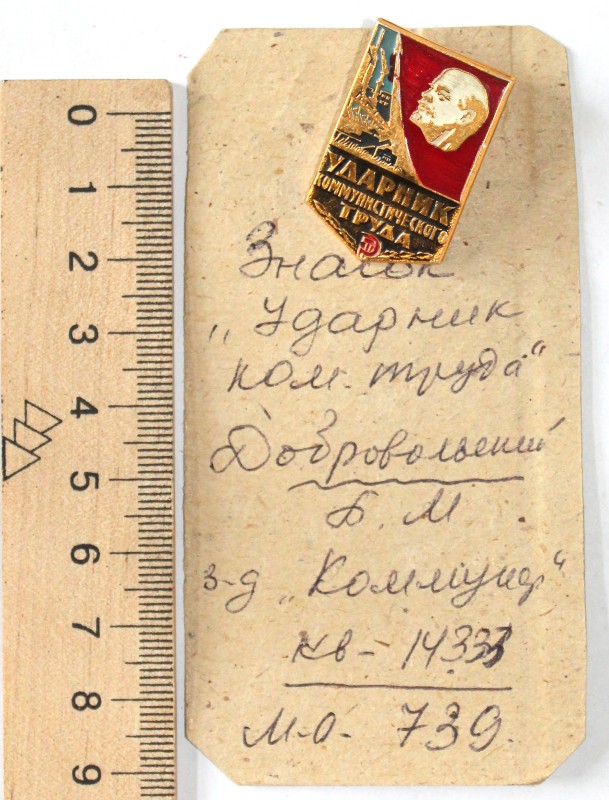 0
1
2
3
4
5
6
7
8
9
УДАРНИК
КОММУНИСТИЧЕСКОГО
ТРУДА
Значок
„Ударник
ком. труда"
Добровольский
Б. М.
з-д „Коммунар"
кв - 14333
М.О. 739.